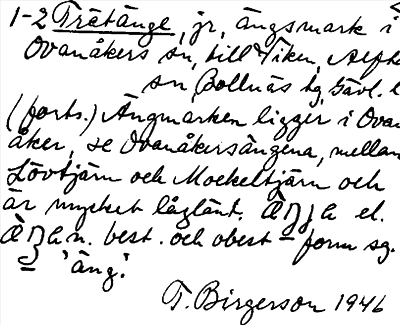 1-2 Trätänge, jr, ängsmark i
Ovanåkers sn, till Viken, Alfta
sn, Bollnäs tg, Gävl. l
(forts.) Ängmarken ligger i Ovan
åker, se Ovanåkersängena, mellan
Lövtjärn och Mockeltjärn och
är mycket låglänt. el.
n. best. och obest = form sg.
= 'äng'.
T. Birgerson 1946